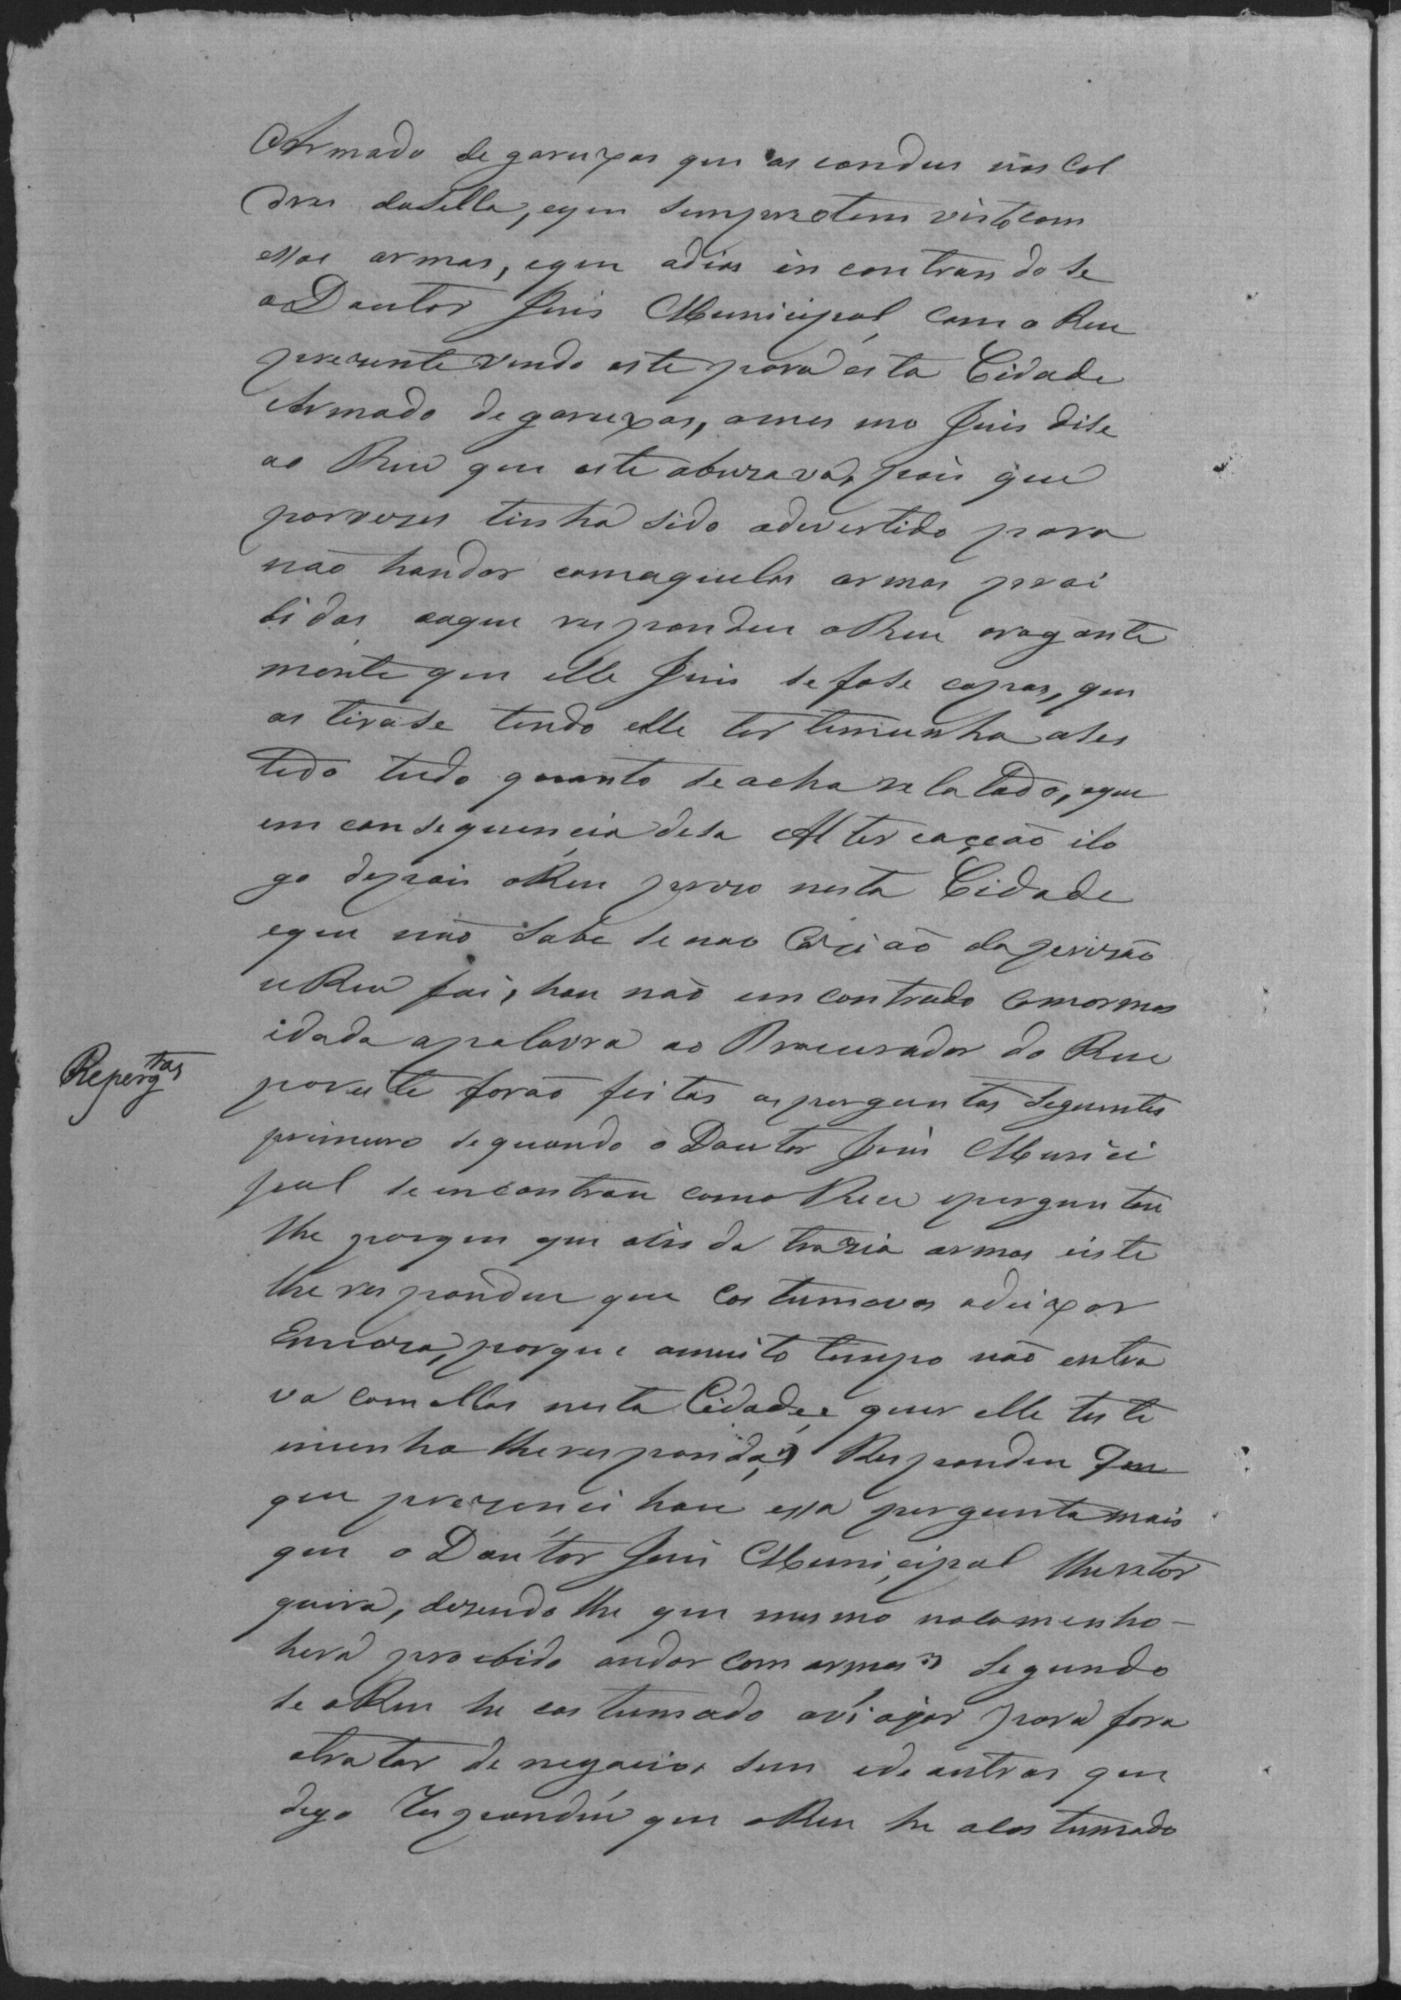 Armado de garuxas que as condus nos Col
dres dasella, eque sempre otem visto com
essas armas, eque adias in contrando se
o Doutor Juis Municipal com o Reu
prezente vindo este para esta Cidade
Armado de garuxas, omes mo Juis dise
ao Reu que este abuzava, pois que
porvezes tinha sido adevertido para
não handar comaquelas armas proi
bidas aoque respondeu oReu arogante
mente que elle Juis se fose capas, que
as tirase tendo elle testemunha asis
tido tudo quanto seacha relatado, eque
em consequencia desa Altercação ilo
go depois oReu prezo nesta Cidade
eque não sabe se nao Ocazião daprizão
oReu foi, hou não emcontrado comarmas
idada apalavra ao Procurador do Reu
poreste forão feitas asperguntas seguintes
primeiro sequando o Doutor Juis Munici
pal seencontrou como Reu eperguntou
lhe porque que ainda trazia armas eeste
lhe respondeu que Costumava adeixar
Emcaza, porque amuito tempo não entra
va comellas nesta Cidade, e quer elle teste
munha lheresponda? Respondeu Que
que prezencihou essa pergunta mais
que o Doutor Juis Municipal lhe retor
quira, dizendo lhe que mesmo nocaminho
hera proebido andar com armas? Segundo
se oReu he costumado aviajar para fora
atratar de negocios seus ede outros que
digo Respondeu que oReu he acostumado
Reperg.tas